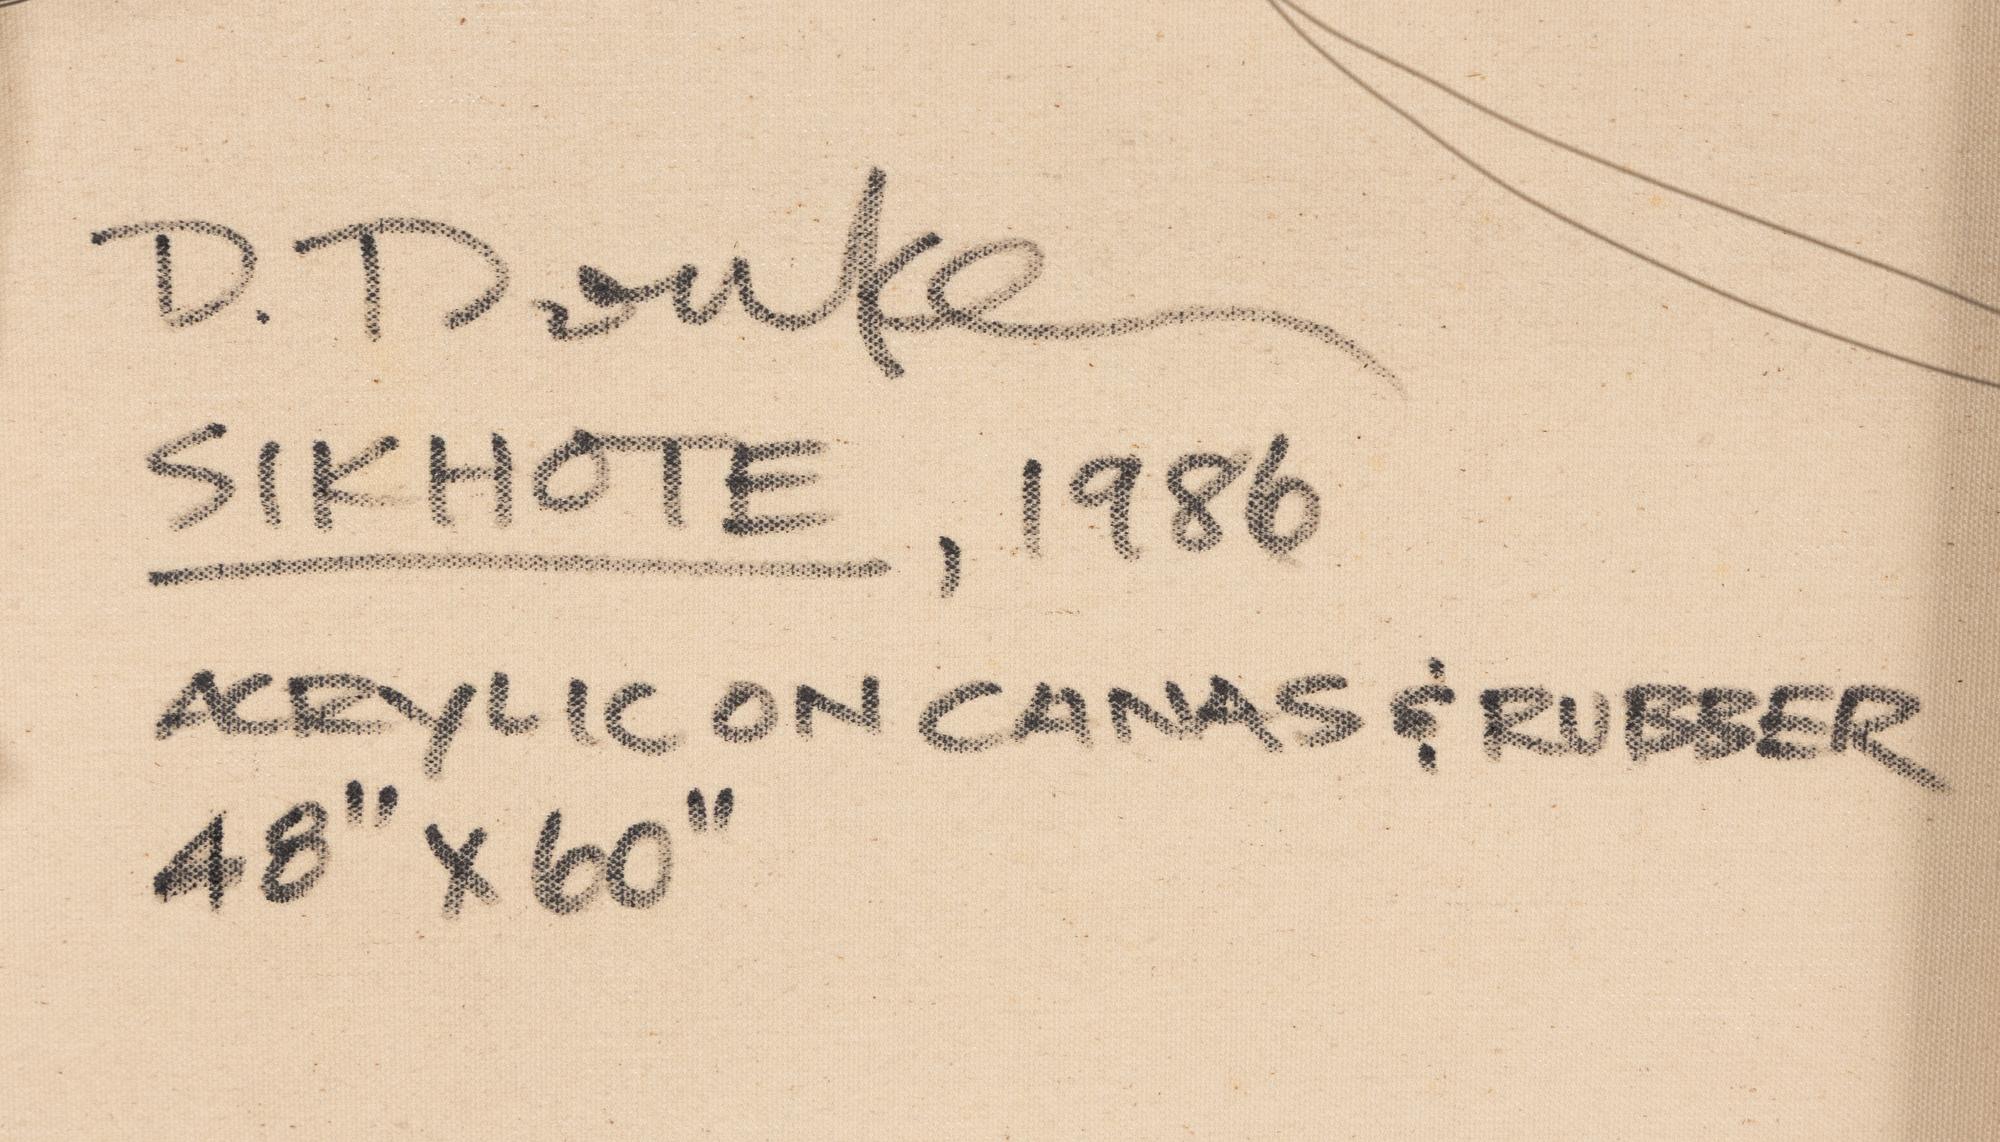 D.
SIKHOTE, 1986
ACRYLIC ON CANAS & RUBBER
48" X 60"